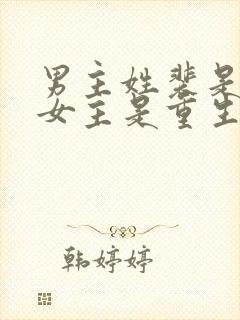 男主姓裴是
女主是重生
韩婷婷